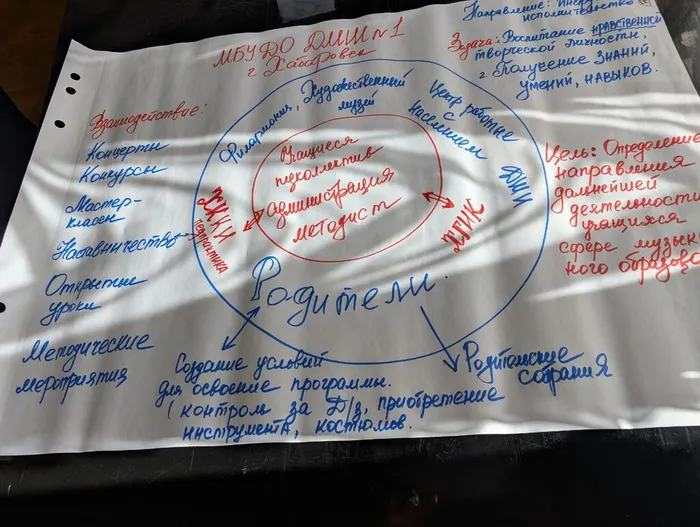 МБУДО ДМШ №1
г. Хабаровск
Направление: Инстру
исполнительство
Задача: Воспитание нравственной
творческой личности,
г. Получение знаний,
умений, навыков.
Взаимодействие:
Концерты
Конкурсы
Мастер-
классы
Наставничество
Открытые
уроки
Методические
мероприятия
Филармония, Художественный
музей
Центр работы
с
населением
ДШИ
Учащиеся
педколлектив
администрация
методист
педпрактика
Родители.
Цель: Определение
направления
дальнейшей
деятельности
учащихся
сфере музыка
ного образова
Создание условий
для освоение программы.
(контроль за Д/з, приобретение
инструмента, костюмов.
Родительские
собрания